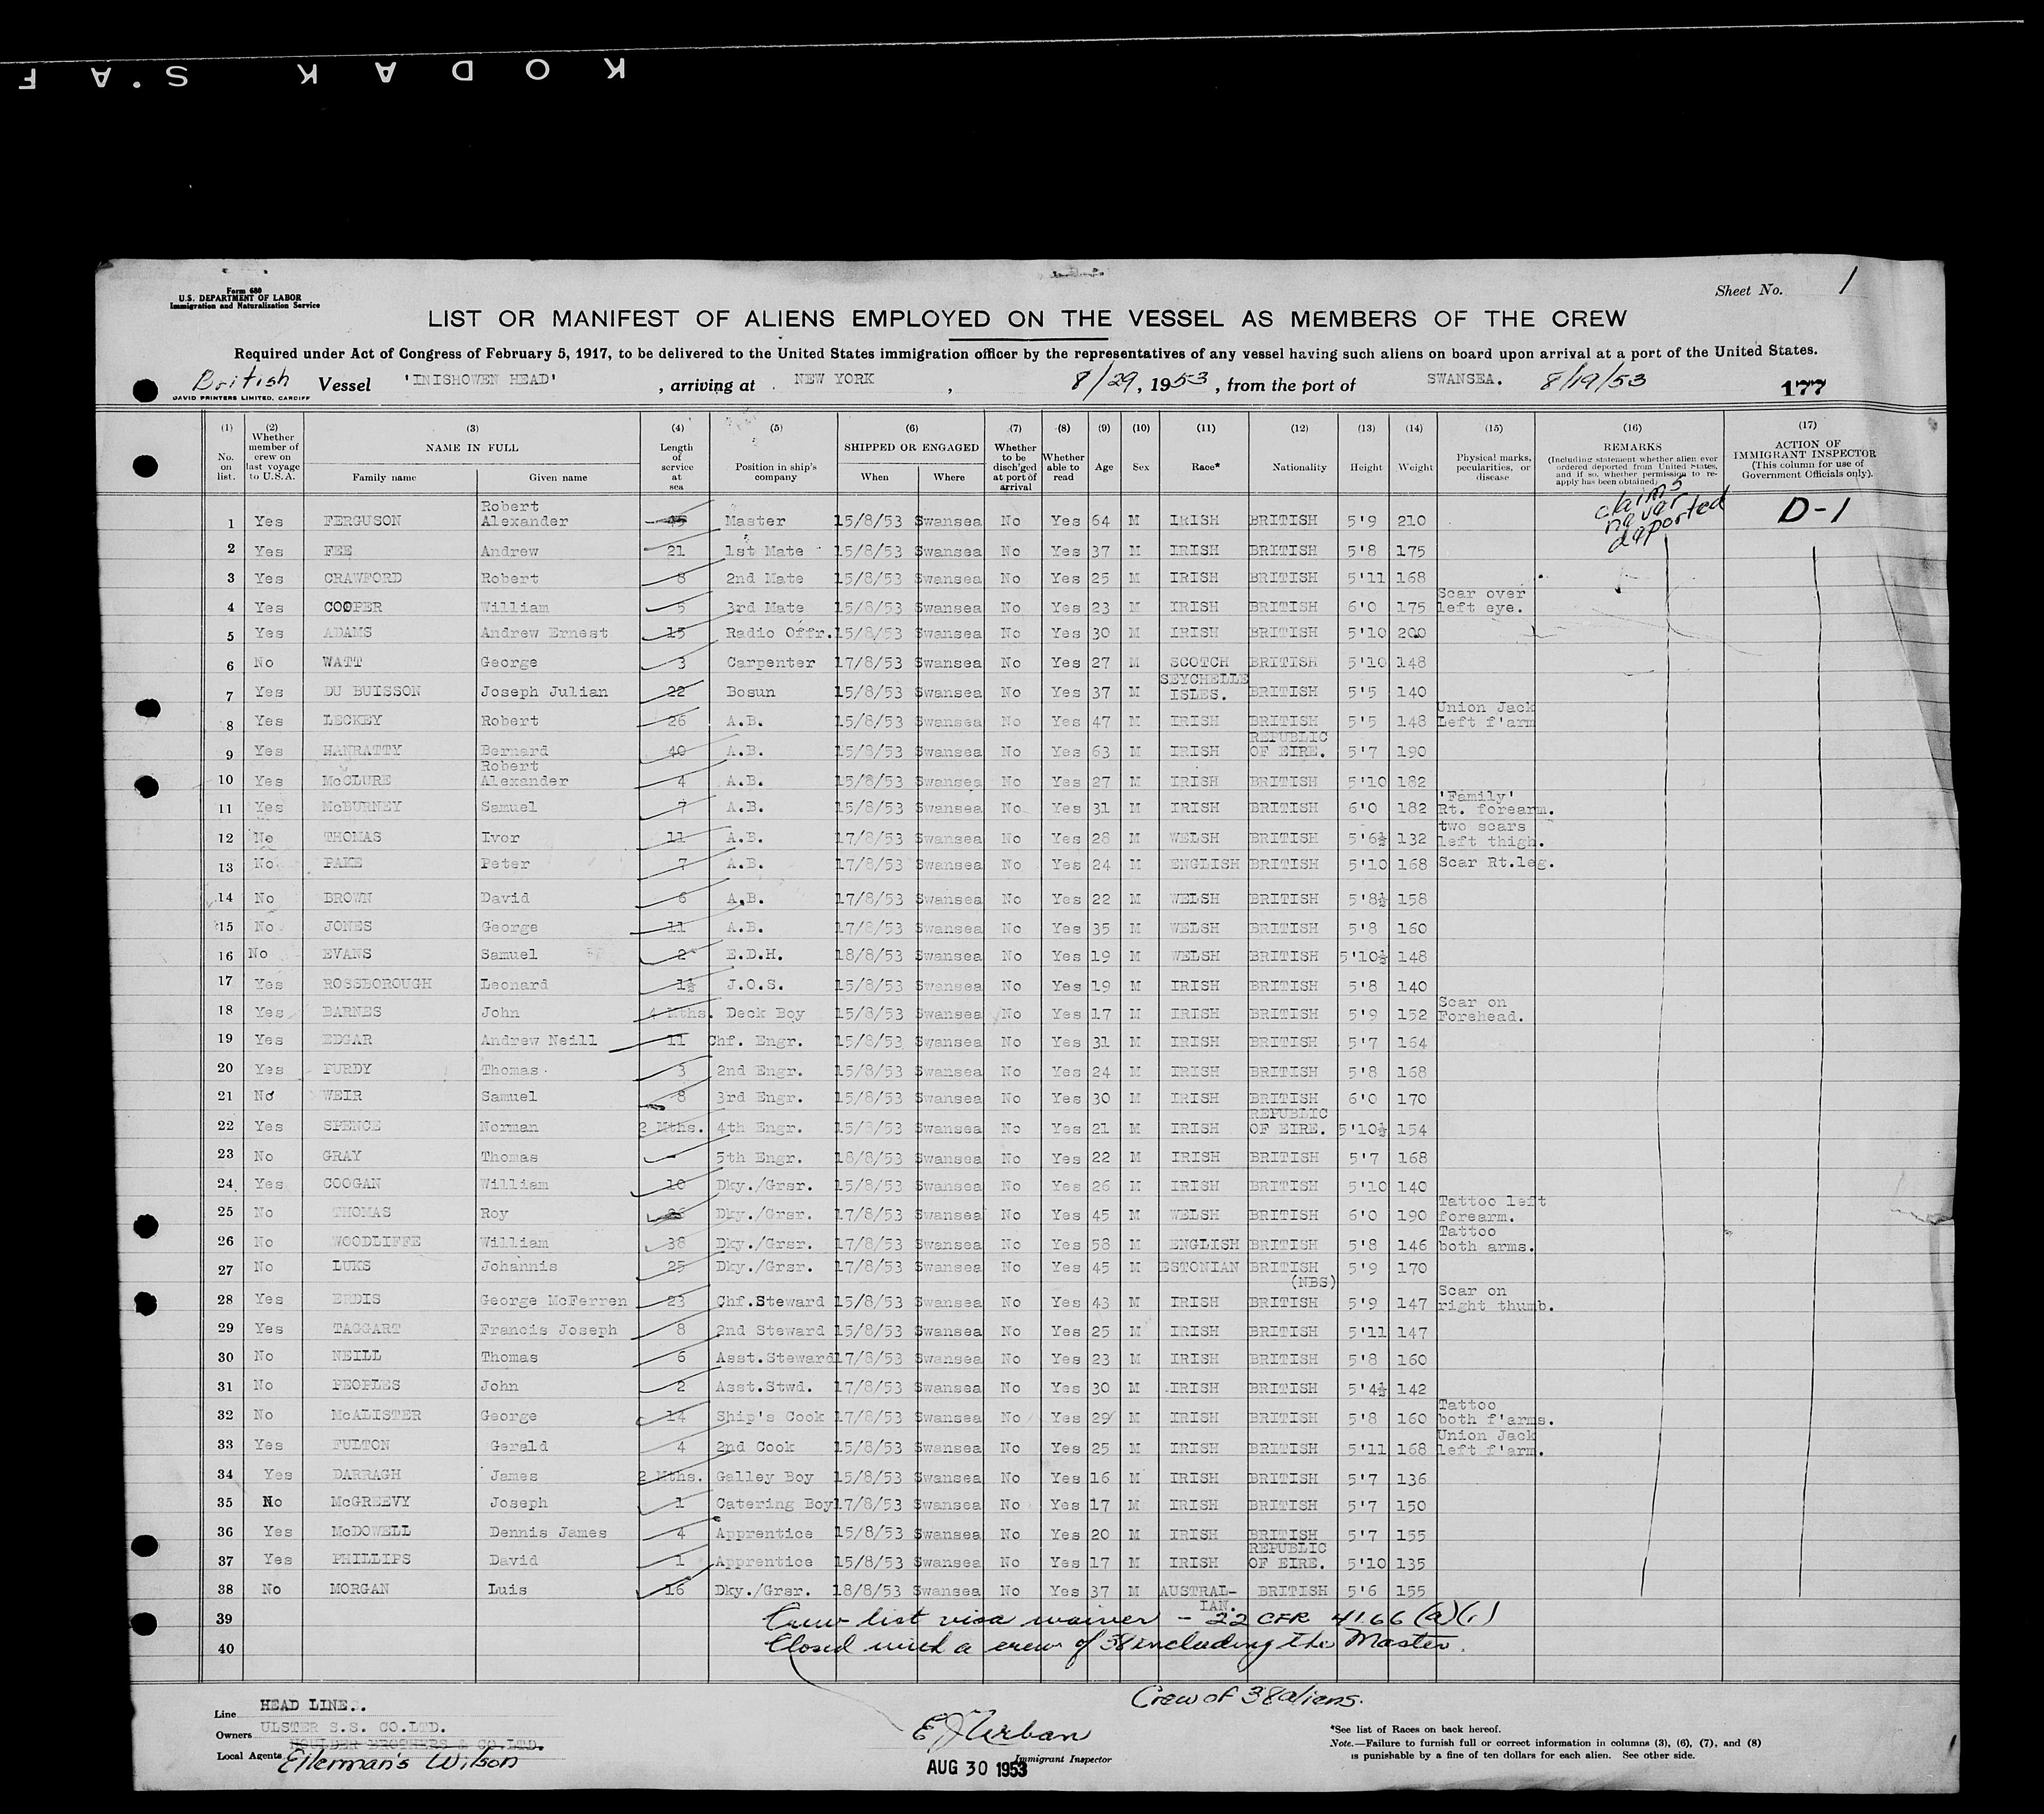 KODAK S.A F
Form 680
U.S. DEPARTMENT OF LABOR
Immigration and Naturalization Service
Sheet No. 1
LIST OR MANIFEST OF ALIENS EMPLOYED ON THE VESSEL AS MEMBERS OF THE CREW
Required under Act of Congress of February 5, 1917, to be delivered to the United States immigration officer by the representatives of any vessel having such aliens on board upon arrival at a port of the United States.
British Vessel 'INISHOWEN HEAD' , arriving at NEW YORK , 8/29, 1953, from the port of SWANSEA. 8/19/53
DAVID PRINTERS LIMITED, CARDIFF
177
(1) No. on list. (2) Whether member of crew on last voyage to U.S.A. (3) NAME IN FULL Family name Given name (4) Length of service at sea (5) Position in ship's company (6) SHIPPED OR ENGAGED When Where (7) Whether to be disch'ged at port of arrival (8) Whether able to read (9) Age (10) Sex (11) Race* (12) Nationality (13) Height (14) Weight (15) Physical marks, pecularities, or disease (16) REMARKS (Including statement whether alien ever ordered deported from United States, and if so, whether permission to re-apply has been obtained) (17) ACTION OF IMMIGRANT INSPECTOR (This column for use of Government Officials only).
1 Yes FERGUSON Robert Alexander Master 15/8/53 Swansea No Yes 64 M IRISH BRITISH 5'9 210 claims never deported D-1
2 Yes FEE Andrew 21 1st Mate 15/8/53 Swansea No Yes 37 M IRISH BRITISH 5'8 175
3 Yes CRAWFORD Robert 8 2nd Mate 15/8/53 Swansea No Yes 25 M IRISH BRITISH 5'11 168
4 Yes COOPER William 5 3rd Mate 15/8/53 Swansea No Yes 23 M IRISH BRITISH 6'0 175 Scar over left eye.
5 Yes ADAMS Andrew Ernest 15 Radio Offr. 15/8/53 Swansea No Yes 30 M IRISH BRITISH 5'10 200
6 No WATT George 3 Carpenter 17/8/53 Swansea No Yes 27 M SCOTCH BRITISH 5'10 148
7 Yes DU BUISSON Joseph Julian 22 Bosun 15/8/53 Swansea No Yes 37 M SEYCHELLE ISLES. BRITISH 5'5 140
8 Yes LECKEY Robert 26 A.B. 15/8/53 Swansea No Yes 47 M IRISH BRITISH 5'5 148 Union Jack Left f'arm
9 Yes HANRATTY Bernard 40 A.B. 15/8/53 Swansea No Yes 63 M IRISH REPUBLIC OF EIRE. 5'7 190
10 Yes McCLURE Robert Alexander 4 A.B. 15/8/53 Swansea No Yes 27 M IRISH BRITISH 5'10 182
11 Yes McBURNEY Samuel 7 A.B. 15/8/53 Swansea No Yes 31 M IRISH BRITISH 6'0 182 'Family' Rt. forearm.
12 No THOMAS Ivor 11 A.B. 17/8/53 Swansea No Yes 28 M WELSH BRITISH 5'6½ 132 two scars left thigh.
13 No PAKE Peter 7 A.B. 17/8/53 Swansea No Yes 24 M ENGLISH BRITISH 5'10 168 Scar Rt.leg.
14 No BROWN David 6 A.B. 17/8/53 Swansea No Yes 22 M WELSH BRITISH 5'8½ 158
15 No JONES George 11 A.B. 17/8/53 Swansea No Yes 35 M WELSH BRITISH 5'8 160
16 No EVANS Samuel 2 E.D.H. 18/8/53 Swansea No Yes 19 M WELSH BRITISH 5'10½ 148
17 Yes ROSSBOROUGH Leonard 1½ J.O.S. 15/8/53 Swansea No Yes 19 M IRISH BRITISH 5'8 140
18 Yes BARNES John 4 Mths. Deck Boy 15/8/53 Swansea No Yes 17 M IRISH BRITISH 5'9 152 Scar on Forehead.
19 Yes EDGAR Andrew Neill 11 Chf. Engr. 15/8/53 Swansea No Yes 31 M IRISH BRITISH 5'7 164
20 Yes PURDY Thomas 3 2nd Engr. 15/8/53 Swansea No Yes 24 M IRISH BRITISH 5'8 168
21 No WEIR Samuel 8 3rd Engr. 15/8/53 Swansea No Yes 30 M IRISH BRITISH 6'0 170
22 Yes SPENCE Norman 2 Mths. 4th Engr. 15/8/53 Swansea No Yes 21 M IRISH REPUBLIC OF EIRE. 5'10½ 154
23 No GRAY Thomas - 5th Engr. 18/8/53 Swansea No Yes 22 M IRISH BRITISH 5'7 168
24 Yes COOGAN William 10 Dky./Grsr. 15/8/53 Swansea No Yes 26 M IRISH BRITISH 5'10 140
25 No THOMAS Roy Dky./Grsr. 17/8/53 Swansea No Yes 45 M WELSH BRITISH 6'0 190 Tattoo left forearm.
26 No WOODLIFFE William 38 Dky./Grsr. 17/8/53 Swansea No Yes 58 M ENGLISH BRITISH 5'8 146 Tattoo both arms.
27 No LUKS Johannis 25 Dky./Grsr. 17/8/53 Swansea No Yes 45 M ESTONIAN BRITISH (NBS) 5'9 170
28 Yes ERDIS George McFerren 23 Chf.Steward 15/8/53 Swansea No Yes 43 M IRISH BRITISH 5'9 147 Scar on right thumb.
29 Yes TAGGART Francis Joseph 8 2nd Steward 15/8/53 Swansea No Yes 25 M IRISH BRITISH 5'11 147
30 No NEILL Thomas 6 Asst.Steward 17/8/53 Swansea No Yes 23 M IRISH BRITISH 5'8 160
31 No PEOPLES John 2 Asst.Stwd. 17/8/53 Swansea No Yes 30 M IRISH BRITISH 5'4½ 142
32 No McALISTER George 14 Ship's Cook 17/8/53 Swansea No Yes 29 M IRISH BRITISH 5'8 160 Tattoo both f'arms.
33 Yes FULTON Gerald 4 2nd Cook 15/8/53 Swansea No Yes 25 M IRISH BRITISH 5'11 168 Union Jack left f'arm.
34 Yes DARRAGH James 2 Mths. Galley Boy 15/8/53 Swansea No Yes 16 M IRISH BRITISH 5'7 136
35 No McGREEVY Joseph 1 Catering Boy 17/8/53 Swansea No Yes 17 M IRISH BRITISH 5'7 150
36 Yes McDOWELL Dennis James 4 Apprentice 15/8/53 Swansea No Yes 20 M IRISH BRITISH 5'7 155
37 Yes PHILLIPS David 1 Apprentice 15/8/53 Swansea No Yes 17 M IRISH REPUBLIC OF EIRE. 5'10 135
38 No MORGAN Luis 16 Dky./Grsr. 18/8/53 Swansea No Yes 37 M AUSTRAL-IAN. BRITISH 5'6 155
39 Crew list visa waiver - 22 CFR 41.66 (a)(1)
40 Closed with a crew of 38 including the Master.
Crew of 38 aliens.
Line HEAD LINE..
Owners ULSTER S.S. CO.LTD.
HOULDER BROTHERS & CO.LTD.
Local Agents Ellerman's Wilson
E J Urban
Immigrant Inspector
AUG 30 1953
*See list of Races on back hereof.
Note.—Failure to furnish full or correct information in columns (3), (6), (7), and (8)
is punishable by a fine of ten dollars for each alien. See other side.